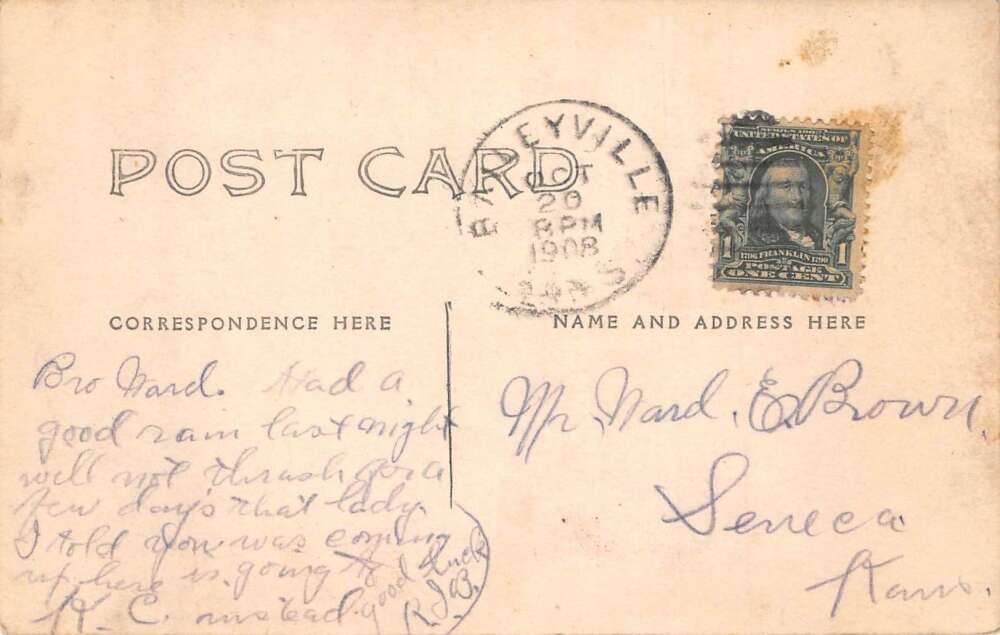 POST CARD
BAILEYVILLE
OCT
20
8 PM
1908
KANS
SERIES 1902
UNITED STATES OF
AMERICA
1 1
1706 FRANKLIN 1790
POSTAGE
ONE CENT
CORRESPONDENCE HERE
NAME AND ADDRESS HERE
Bro Ward. Had a
good rain last night
will not thrash for a
few days that lady
I told you was coming
up here is going to
K. C. instead. good luck
R.J.B.
Mr. Ward. E. Brown.
Seneca
Kans.